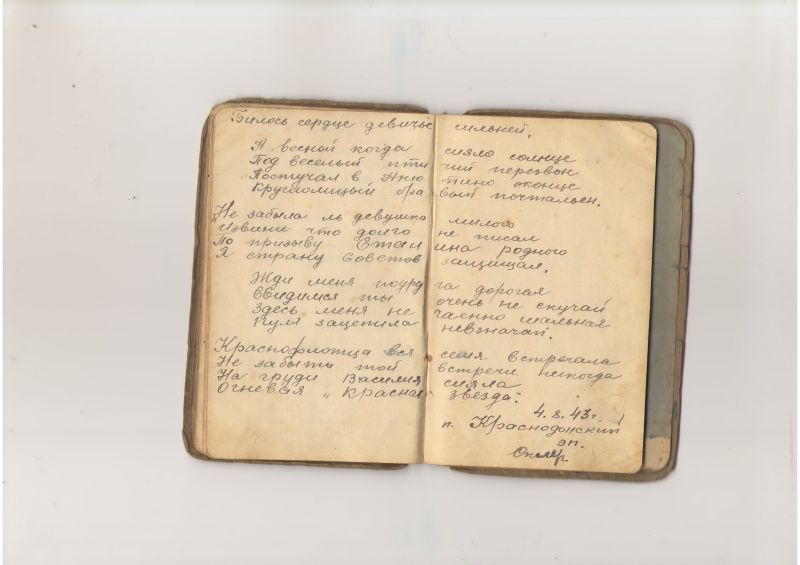 Билось сердце девичье сильней.
А весной когда сияло солнце
Под веселый птичий перезвон
Постучал в Анютино оконце
Круглолицый бравый почтальен.
„Не забыла ль девушка милого
Извини что долго не писал
По призыву Сталина родного
Я страну советов защищал.
Жди меня подруга дорогая
ввидимся ты очень не скучай
Здесь меня не чаенно шальная
Пуля зацепила невзначай.
Краснофлотца вся семя встречала
Не забыть той встречи никогда
На груди Василия сияла
Огневая „красная звезда".
4.8.43г.
п. Краснодонский
эп.